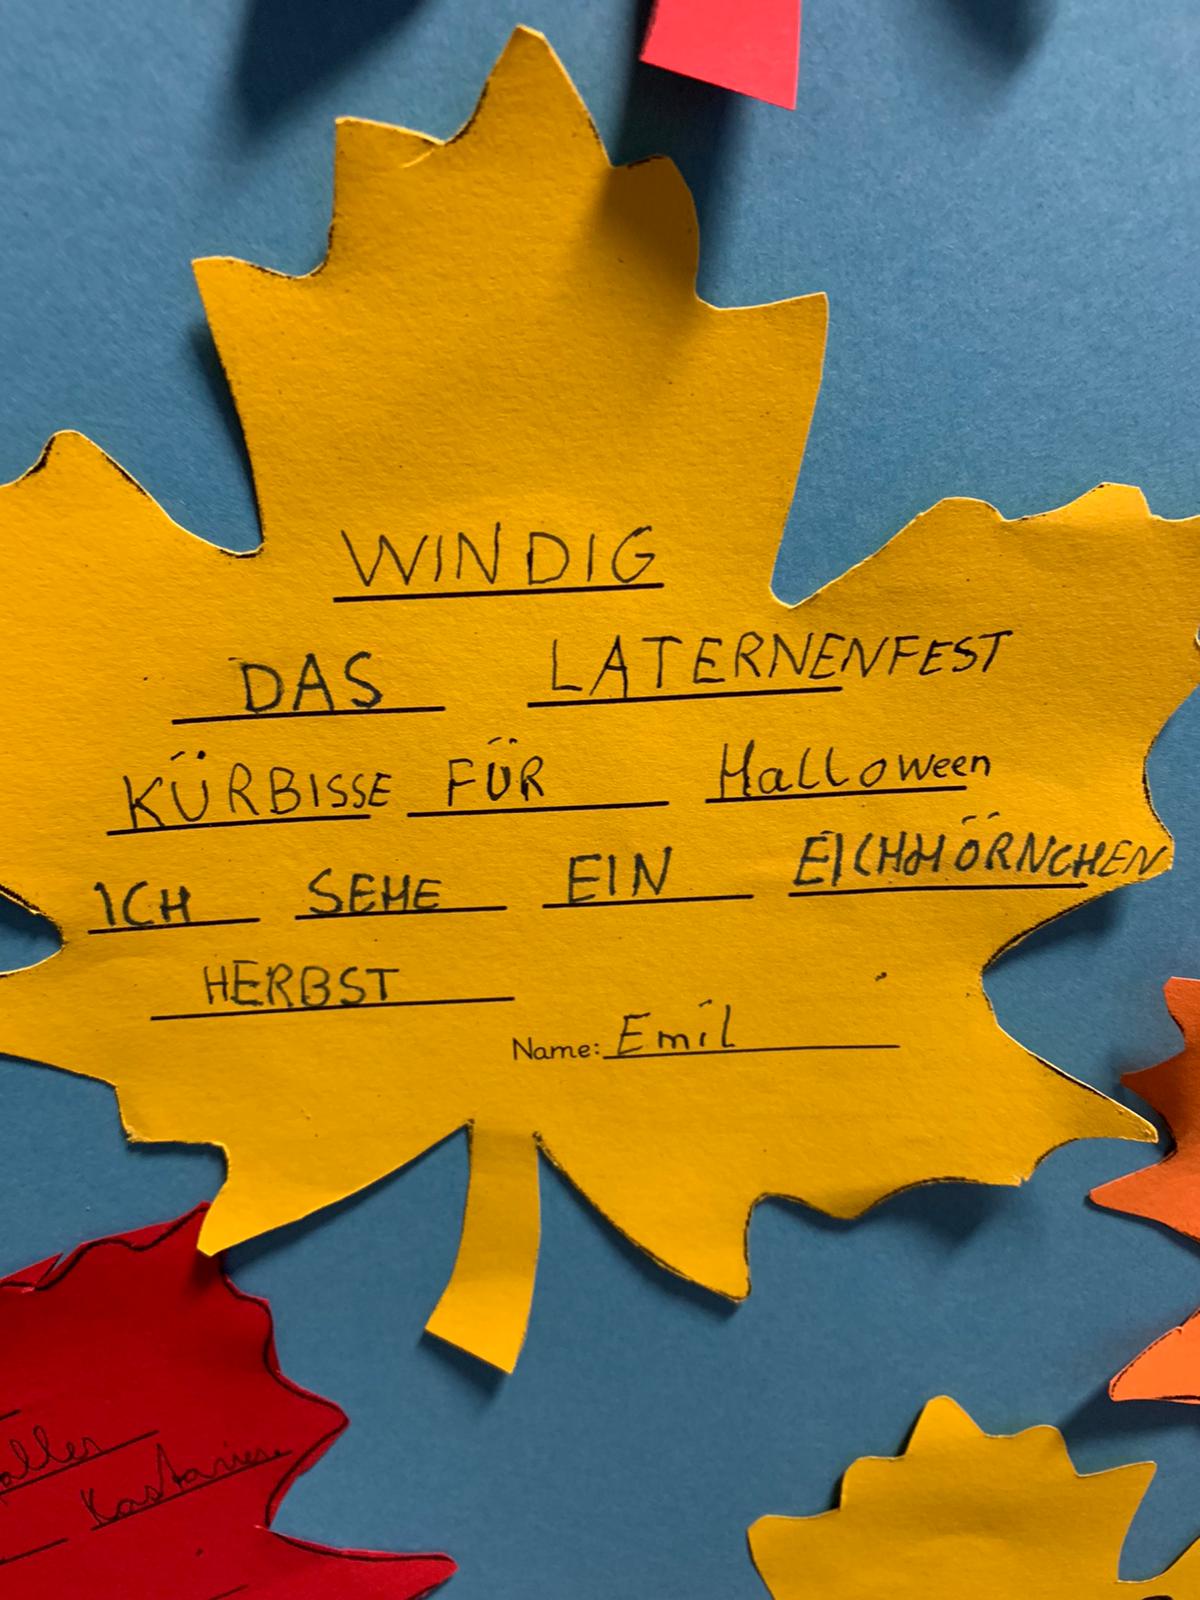 WINDIG
DAS LATERNENFEST
KÜRBISSE FÜR Halloween
ICH SEHE EIN EICHHÖRNCHEN
HERBST
Name: Emil
Kastanien